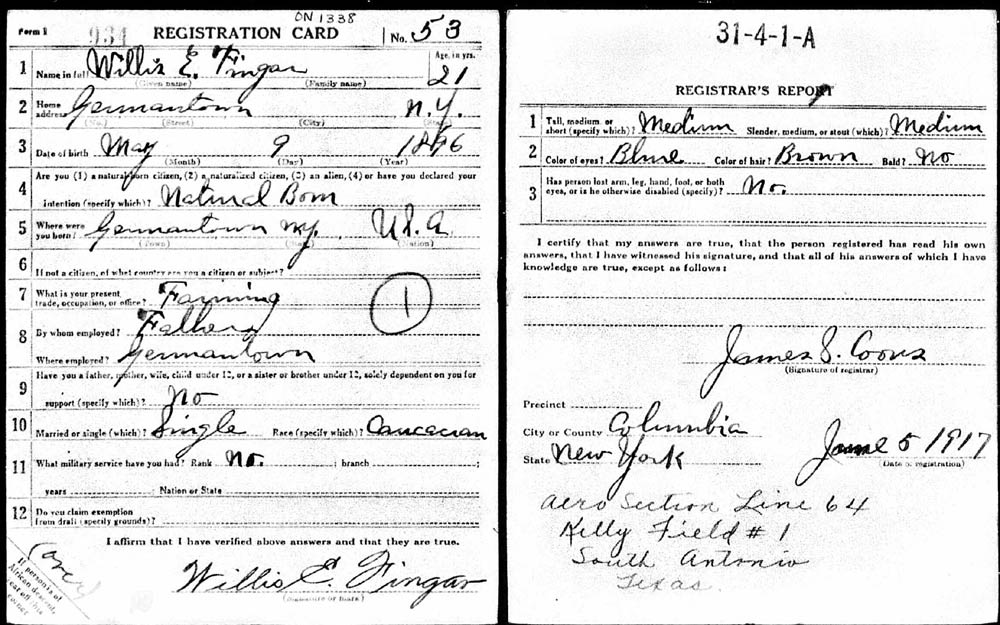 ON 1338
Form 1 934 REGISTRATION CARD No. 53
1 Name in full Willis E. Fingar Age, in yrs. 21
(Given name) (Family name)
2 Home address Germantown N.Y.
(No.) (Street) (City) (State)
3 Date of birth May 9 1896
(Month) (Day) (Year)
4 Are you (1) a natural-born citizen, (2) a naturalized citizen, (3) an alien, (4) or have you declared your
intention (specify which)? Natural Born
5 Where were you born? Germantown N.Y. U.S.A.
(Town) (State) (Nation)
6 If not a citizen, of what country are you a citizen or subject?
7 What is your present trade, occupation, or office? Farming 1
8 By whom employed? Father
Where employed? Germantown
9 Have you a father, mother, wife, child under 12, or a sister or brother under 12, solely dependent on you for
support (specify which)? No
10 Married or single (which)? Single Race (specify which)? Caucasian
11 What military service have you had? Rank No. ; branch ;
years ; Nation or State
12 Do you claim exemption from draft (specify grounds)?
I affirm that I have verified above answers and that they are true.
Willis E. Fingar
(Signature or mark)
If person is of African descent, tear off this corner
31-4-1-A
REGISTRAR'S REPORT
1 Tall, medium, or short (specify which)? Medium Slender, medium, or stout (which)? Medium
2 Color of eyes? Blue Color of hair? Brown Bald? No
3 Has person lost arm, leg, hand, foot, or both eyes, or is he otherwise disabled (specify)? No.
I certify that my answers are true, that the person registered has read his own
answers, that I have witnessed his signature, and that all of his answers of which I have
knowledge are true, except as follows:
James S. Coons
(Signature of registrar)
Precinct
City or County Columbia
State New York June 5 1917
(Date of registration)
Aero Section Line 64
Kelly Field # 1
South Antonio
Texas.